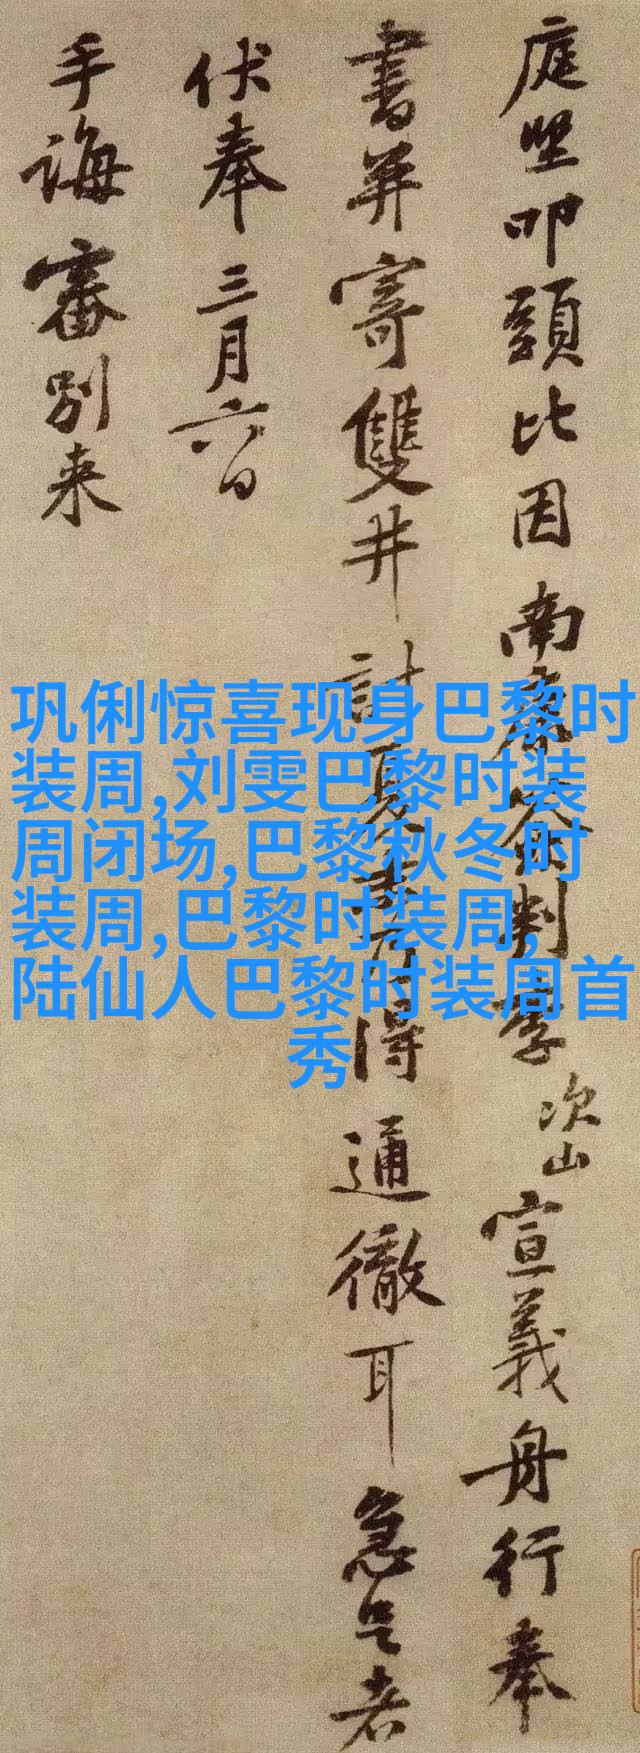 庭堅叩頭比因南康僉判李次山宣義舟行奉
書并寄雙井計夏末乃得通徹耳急足者
伏奉三月六日
手誨審别来
巩俐惊喜现身巴黎时
装周,刘雯巴黎时装
周闭场,巴黎秋冬时
装周,巴黎时装周,
陆仙人巴黎时装周首
秀